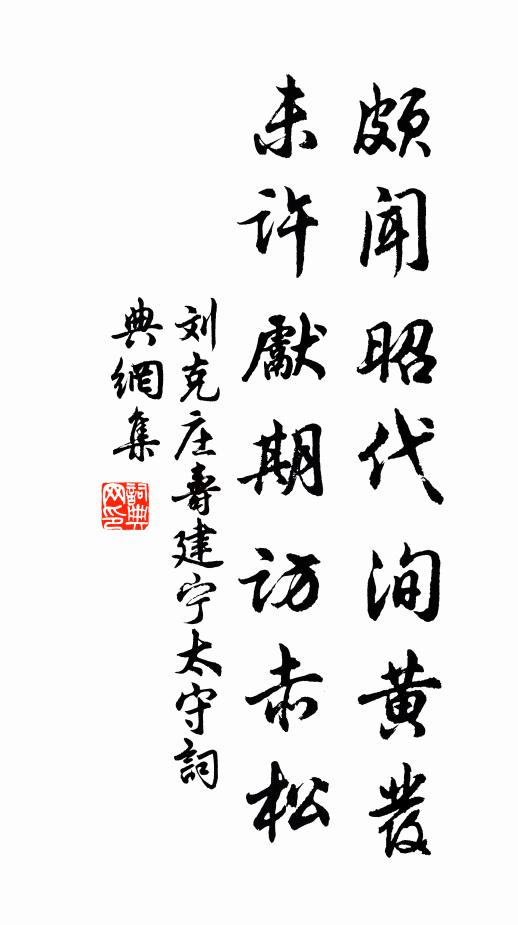 颇闻昭代洵黄发
未许猷期访赤松
刘克庄寿建宁太守词
典网集
词典网印